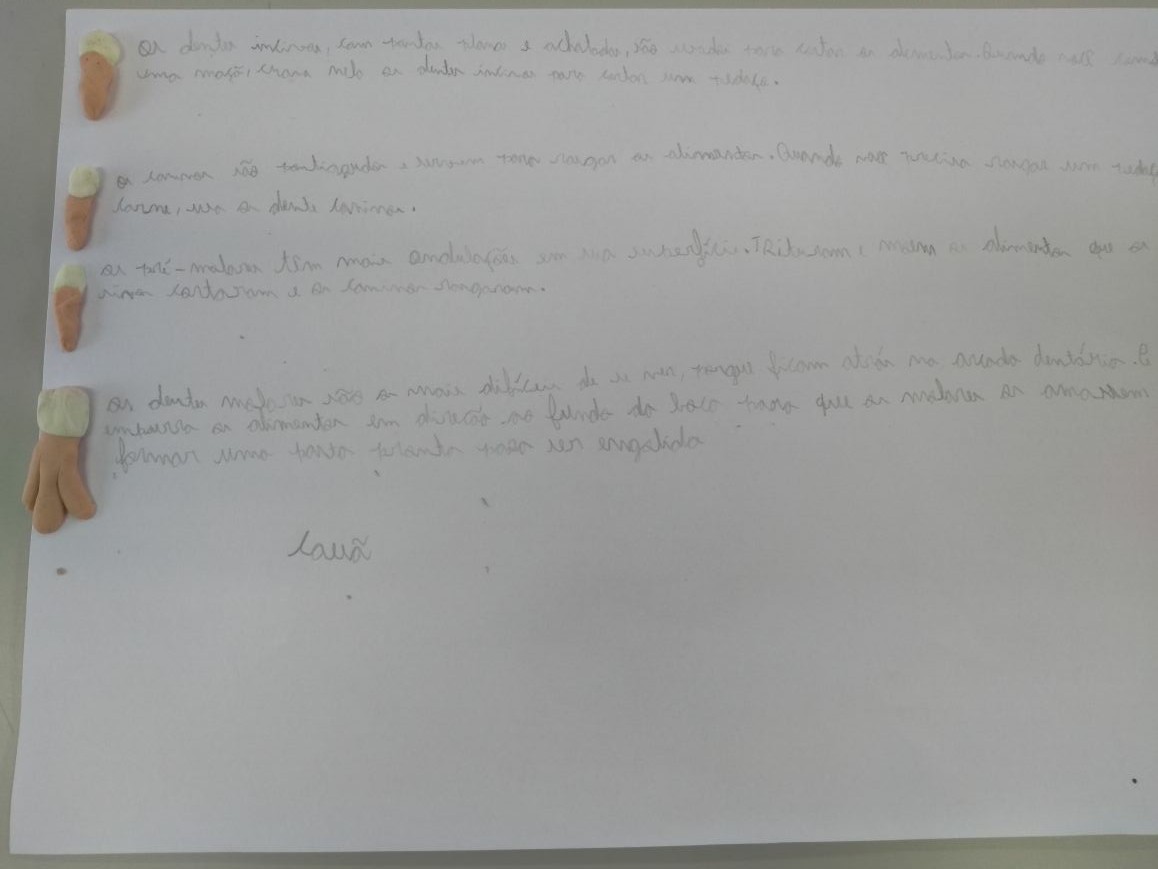 os dentes incisivos, com pontas planas e achatadas, são usados para cortar os alimentos. Quando você
uma maçã, crava nela os dentes incisivos para cortar um pedaço.
os caninos são pontiagudos e servem para rasgar os alimentos. Quando você precisa rasgar um pedaço
carne, usa os dente caninos.
os pré-molares têm mais ondulações em sua superfície. Trituram e moem os alimentos que os
cortaram e os caninos rasgaram.
os dentes molares são os mais difíceis de se ver, porque ficam atrás na arcada dentária.
empurra os alimentos em direção ao fundo da boca para que os molares os amassem
formar uma pasta pronta para ser engolida
Cauã